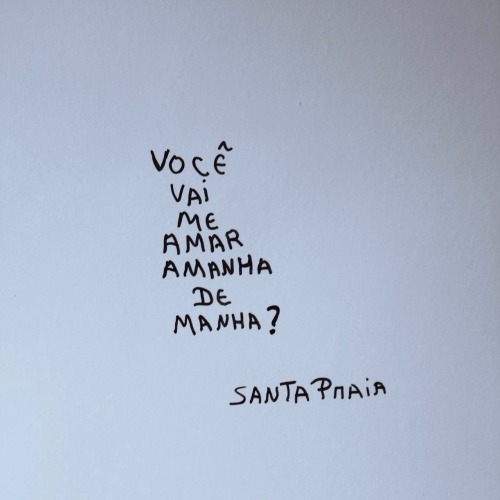 VOCÊ
VAI
ME
AMAR
AMANHA
DE
MANHA?
SANTA PRAIA